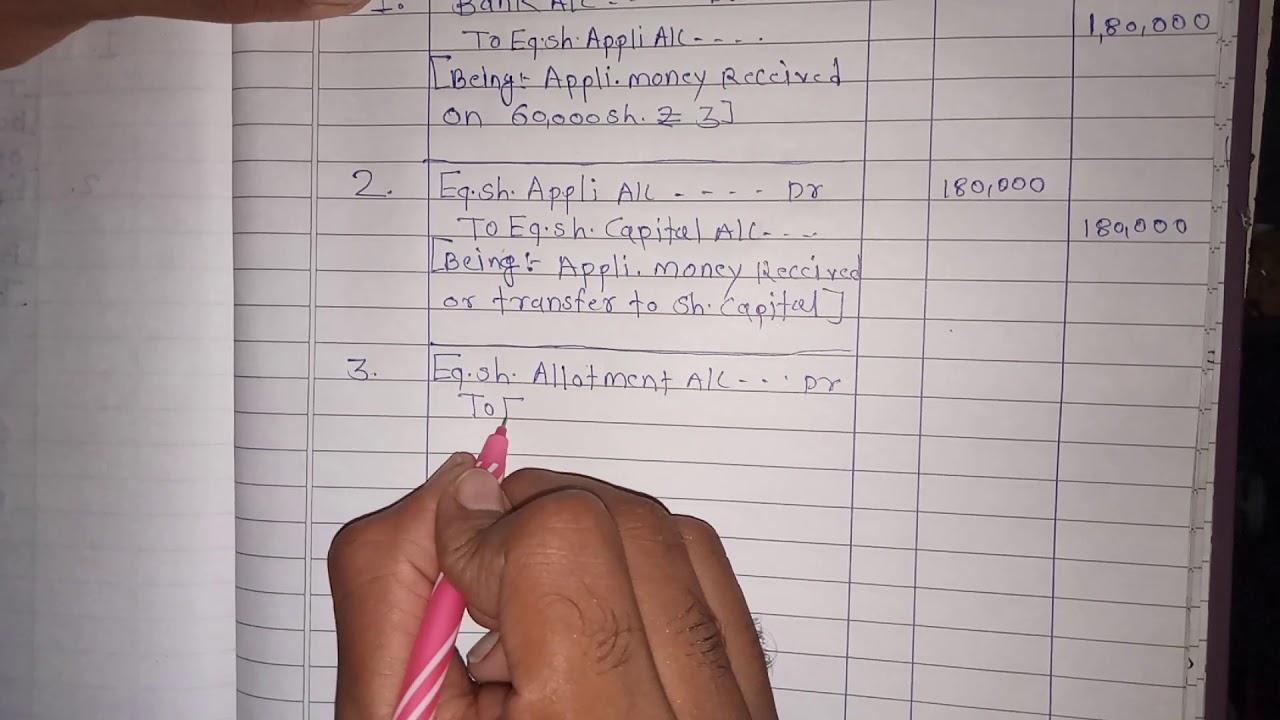 1. Bank A/c
To Eq.sh. Appli A/c - - - . 1,80,000
[Being:- Appli. money Received
on 60,000 sh. Z 3]
2. Eq.sh. Appli A/c - - - - Dr 180,000
To Eq.sh. Capital A/c - - - 180,000
[Being:- Appli. money Received
or transfer to sh. Capital]
3. Eq.sh. Allotment A/c - - - Dr
To